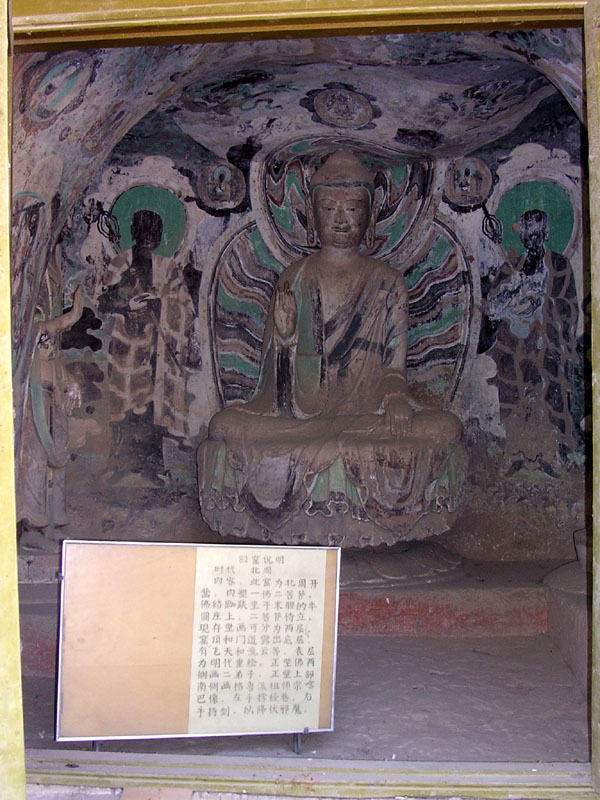 82窟说明
时代：北周
内容：此窟为北周开
凿。内塑一佛二菩萨。
佛结跏趺坐于束腰的半
圆座上。二菩萨侍立。
现存壁画可分为两层；
窟顶和门道露出底层，
有飞天和流云。表层
为明代重绘。正壁两
侧画二弟子
南侧画格鲁派祖师宗喀
巴像。左手捧经卷，右
手持剑。以降伏邪魔。